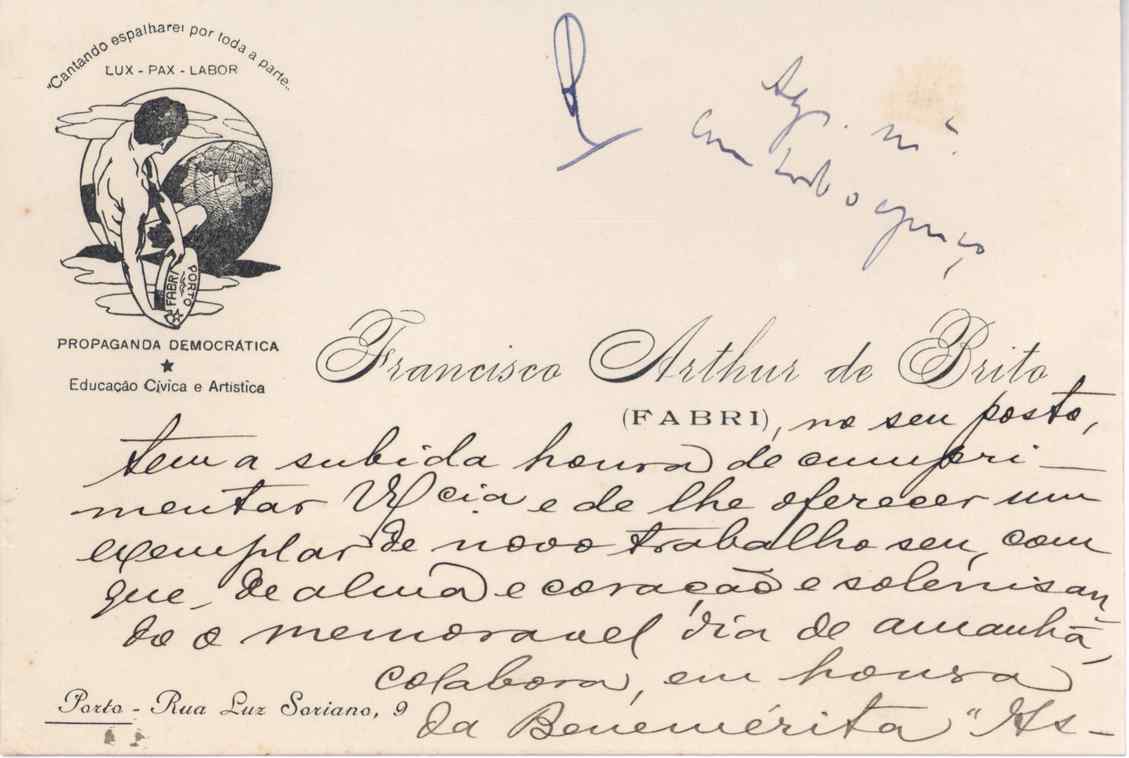 "Cantando espalharei por toda a parte"
LUX - PAX - LABOR
FABRI
PORTO
PROPAGANDA DEMOCRÁTICA
Educação Cívica e Artística
com todo o apreço
Francisco Arthur de Brito
(FABRI), no seu posto,
tem a subida honra de cumpri-
mentar V. Ex.cia e de lhe oferecer um
exemplar de novo trabalho seu, com
que, de alma e coração e solenisan
do o memoravel dia de amanhã,
colabora, em honra
da Benemérita "As-
Porto - Rua Luz Soriano, 9